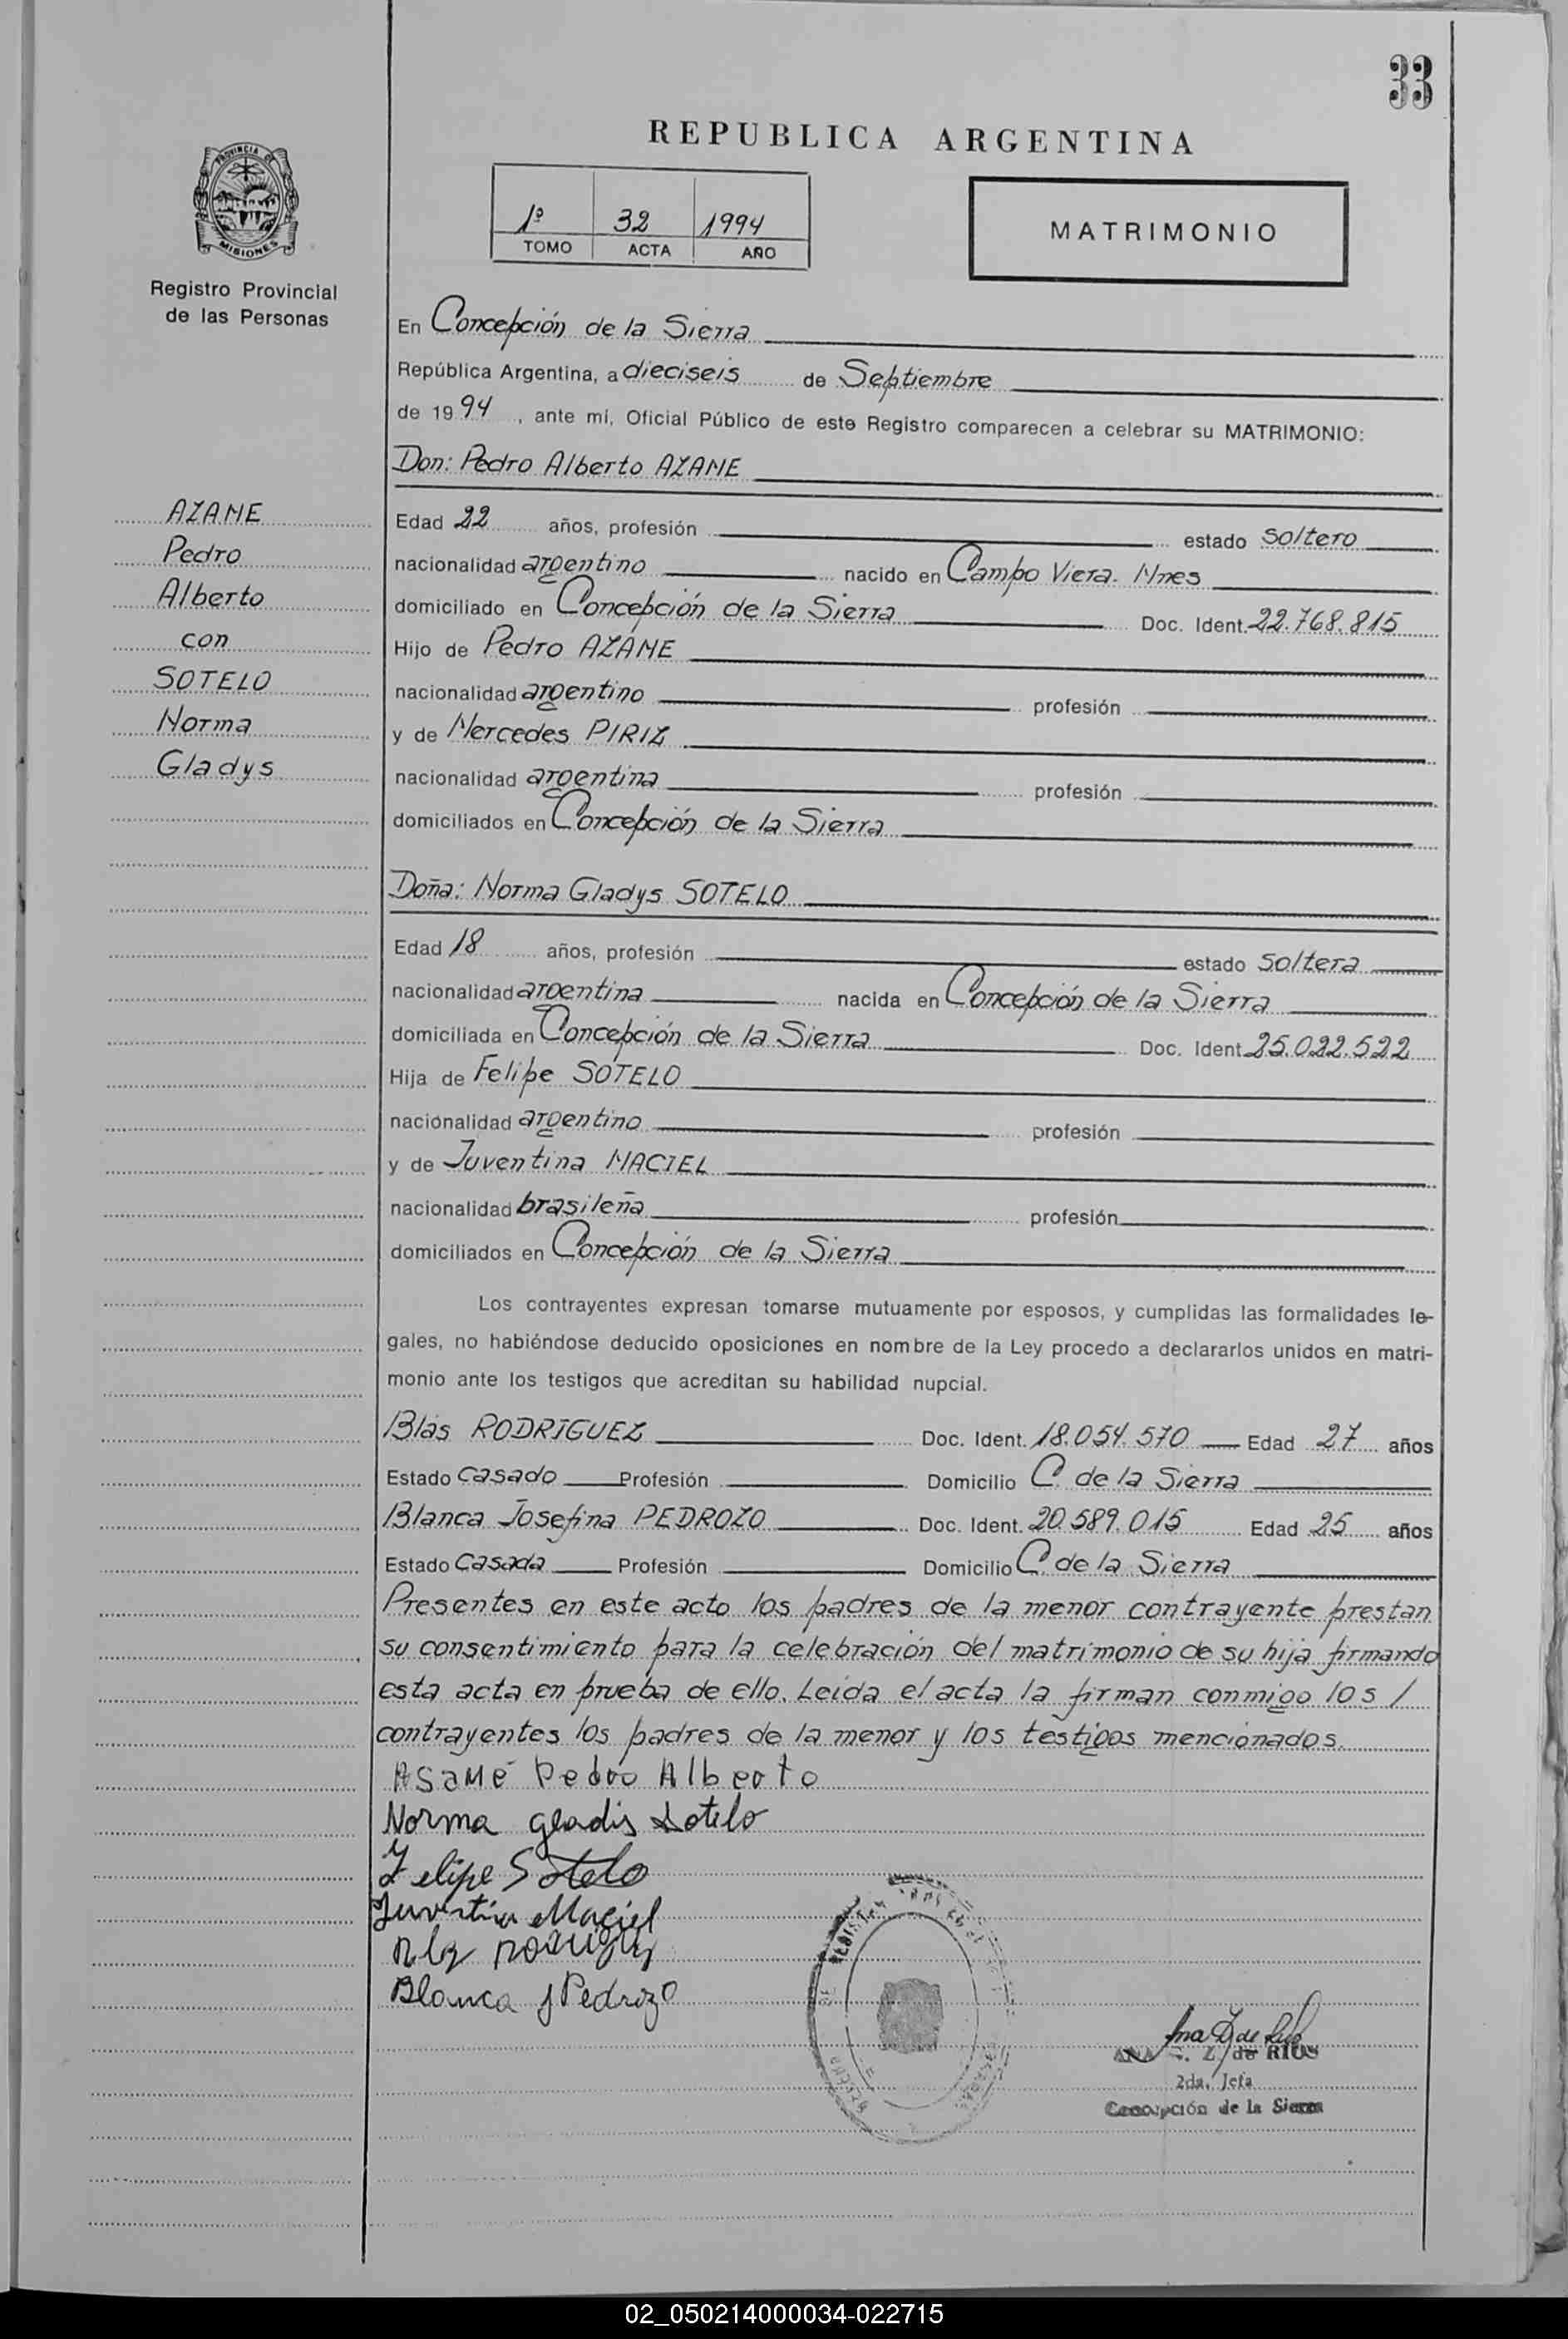 33
REPUBLICA ARGENTINA
PROVINCIA DE
MISIONES
1º 32 1994
TOMO ACTA AÑO
MATRIMONIO
Registro Provincial
de las Personas
En Concepción de la Sierra
República Argentina, a dieciseis de Septiembre
de 1994, ante mí, Oficial Público de este Registro comparecen a celebrar su MATRIMONIO:
Don: Pedro Alberto AZAME
AZAME
Pedro
Alberto
con
SOTELO
Norma
Gladys
Edad 22 años, profesión estado soltero
nacionalidad argentino nacido en Campo Viera. Mnes
domiciliado en Concepción de la Sierra Doc. Ident. 22.768.815
Hijo de Pedro AZAME
nacionalidad argentino profesión
y de Mercedes PIRIZ
nacionalidad argentina profesión
domiciliados en Concepción de la Sierra
Doña: Norma Gladys SOTELO
Edad 18 años, profesión estado soltera
nacionalidad argentina nacida en Concepción de la Sierra
domiciliada en Concepción de la Sierra Doc. Ident. 25.022.522
Hija de Felipe SOTELO
nacionalidad argentino profesión
y de Juventina MACIEL
nacionalidad brasileña profesión
domiciliados en Concepción de la Sierra
Los contrayentes expresan tomarse mutuamente por esposos, y cumplidas las formalidades le-
gales, no habiéndose deducido oposiciones en nombre de la Ley procedo a declararlos unidos en matri-
monio ante los testigos que acreditan su habilidad nupcial.
Blás RODRIGUEZ Doc. Ident. 18.054.570 Edad 27 años
Estado Casado Profesión Domicilio C. de la Sierra
Blanca Josefina PEDROZO Doc. Ident. 20.589.015 Edad 25 años
Estado Casada Profesión Domicilio C. de la Sierra
Presentes en este acto los padres de la menor contrayente prestan
su consentimiento para la celebración del matrimonio de su hija firmando
esta acta en prueba de ello. Leída el acta la firman conmigo los /
contrayentes los padres de la menor y los testigos mencionados.
Asamé Pedro Alberto
Norma Gladis Sotelo
Felipe Sotelo
Juventina Maciel
Blanca J Pedrozo
ANA Z. de RIOS
2da. Jefa
Concepción de la Sierra
02_050214000034-022715